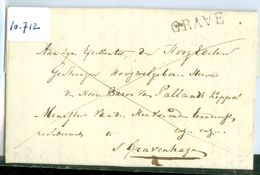 10.712
GRAVE
Aan Zijne Excellentie den Hoog Edelen
Gestrengen Hoogwelgeboren Heere
den Heere Baron van Pallandt Keppel
Minister van de Hervormde Eeredienst
enz. enz.
residerende te
s' Gravenhage